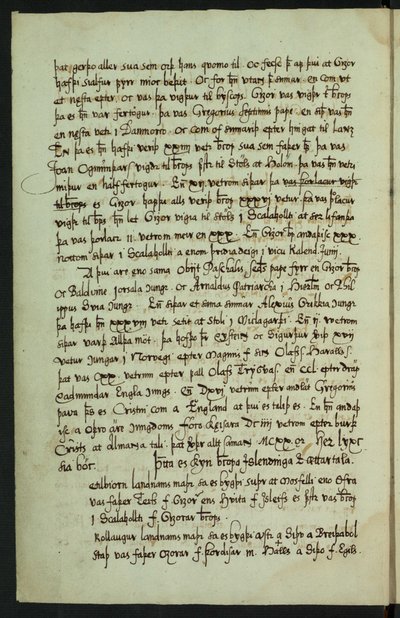 þat, gerþo aller sva sem orþ hans qvomo til. Oc fecsc þ af þvi at Gizor
hafþi sialfur fyrr mioc beþit. Oc for hn utan þ sumar. en com út
et nęsta epter. oc vas þa vigþur til byscops. Gizor vas vigþr t bcops
þa es hn var fertögur. þa vas Gregorius septimus pape. en siþ vas hn
en nęsta vetr i Danmorco. Oc com of sumariþ epter hingat til Lanz
En þa es hn hafþi veriþ xxiiii vetr bcop sva sem faþer h. þa vas
Joan Ogmundarson vigdr til bcops fyrstr til Stols at Holom. þa vas hn vetri
miþur en half fertogur. En xii vetrom siþar þa vas þorlacur vigþr
til bcops es Gizor hafþi alls veriþ bcop xxxvi vetur. þa vas þlacur
vigþr til bps hn let Gizor vigia til stóls i Scalaholti at ser lifanda
þa vas þorlacr ii vetrom meir en xxx. en Gizor bp andaþisc xxx
nottom siþar i Scalaholti a enom þriþia degi i vicu Kalend. Junij.
A þvi are eno sama Obijt Paschalis secds pape fyrr en Gizor bcop
Oc Balduine Jorsala kungr. oc Arnaldus Patriarcha i Hierlm oc Phil
ippus Svia kungr. En siþar et sama summar Alexius Grikkia kungr
þa hafþi hn xxxviii vetr setit at Stoli i Miclagarþi. En ij vetrom
siþar varþ Alldamot. þa hofþo þr Eysteinn oc Sigurþur veriþ xvij
vetur kungar i Norvegi epter Magnus f. sinn Olafss. Haralds f.
þat vas CXX. vetrum epter fall Olafs Trygvas. en CCL epter dráp
Eadmundar Engla kungs. En DXVi vetrom epter andlat Gregorius
pava þess es Cristni com a England at þvi es taliþ es. En hn andaþ
isc a oþro are kungdoms Foco keisara DC iiij vetrom epter burþ
Crists at almanna tali. þat verþr allt saman MCXX. oc Her lycsc
sia bóc. Þetta es kyn bcopa Islendinga oc ættartala.
Ketilbiorn landnams maþr sa es bygþi suþr at Mosfelli eno ofra
vas faþer Teits f. Gizorar ens hvita f. Isleifs es fyrstr vas bcop
i Scalaholti f. Gizorar bcops.
Rollaugur landnams maþr sa es bygþi austr a Siþo a Breiþabol
staþ vas faþer Ozorar f. þordisar m. Halls a Siþo f. Egils.